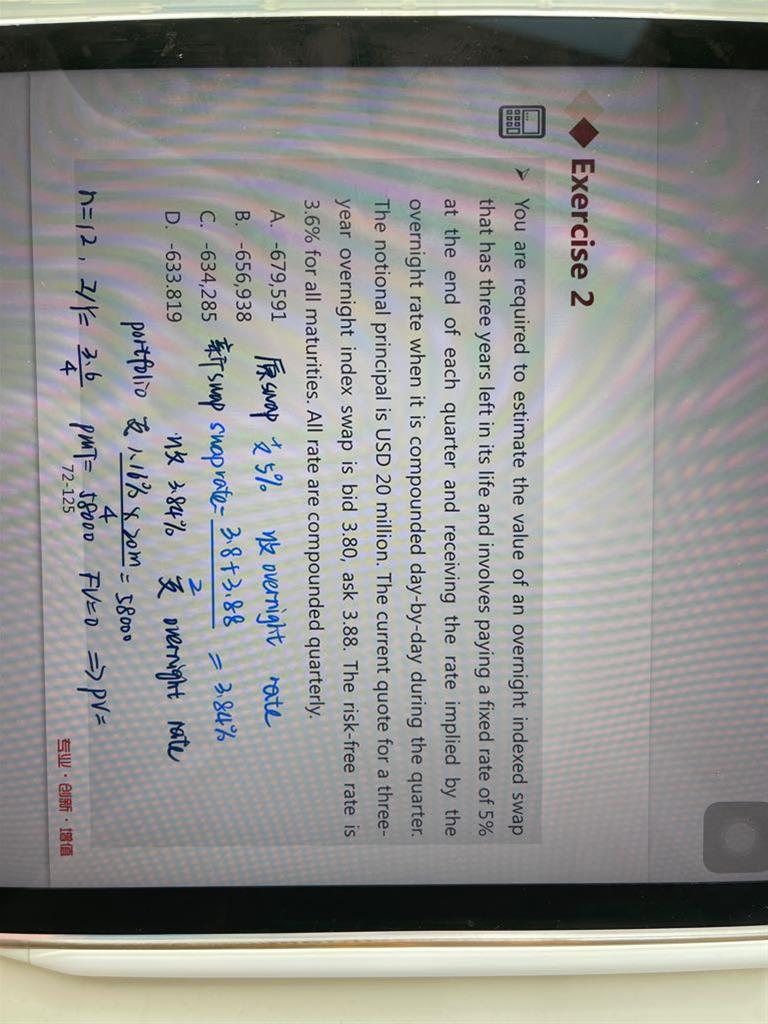 Exercise 2
➤ You are required to estimate the value of an overnight indexed swap
that has three years left in its life and involves paying a fixed rate of 5%
at the end of each quarter and receiving the rate implied by the
overnight rate when it is compounded day-by-day during the quarter.
The notional principal is USD 20 million. The current quote for a three-
year overnight index swap is bid 3.80, ask 3.88. The risk-free rate is
3.6% for all maturities. All rate are compounded quarterly.
A. -679,591
原swap 支5% 收 overnight rate
B. -656,938
C. -634,285
新swap swap rate = 3.8+3.88 / 2 = 3.84%
D. -633.819
收 3.84% 支 overnight rate
portfolio 支 1.16% × 20m / 4 = 58000
n=12, I/Y= 3.6 / 4 PMT= 58000 FV=0 ⇒ PV=
72-125
专业·创新·增值